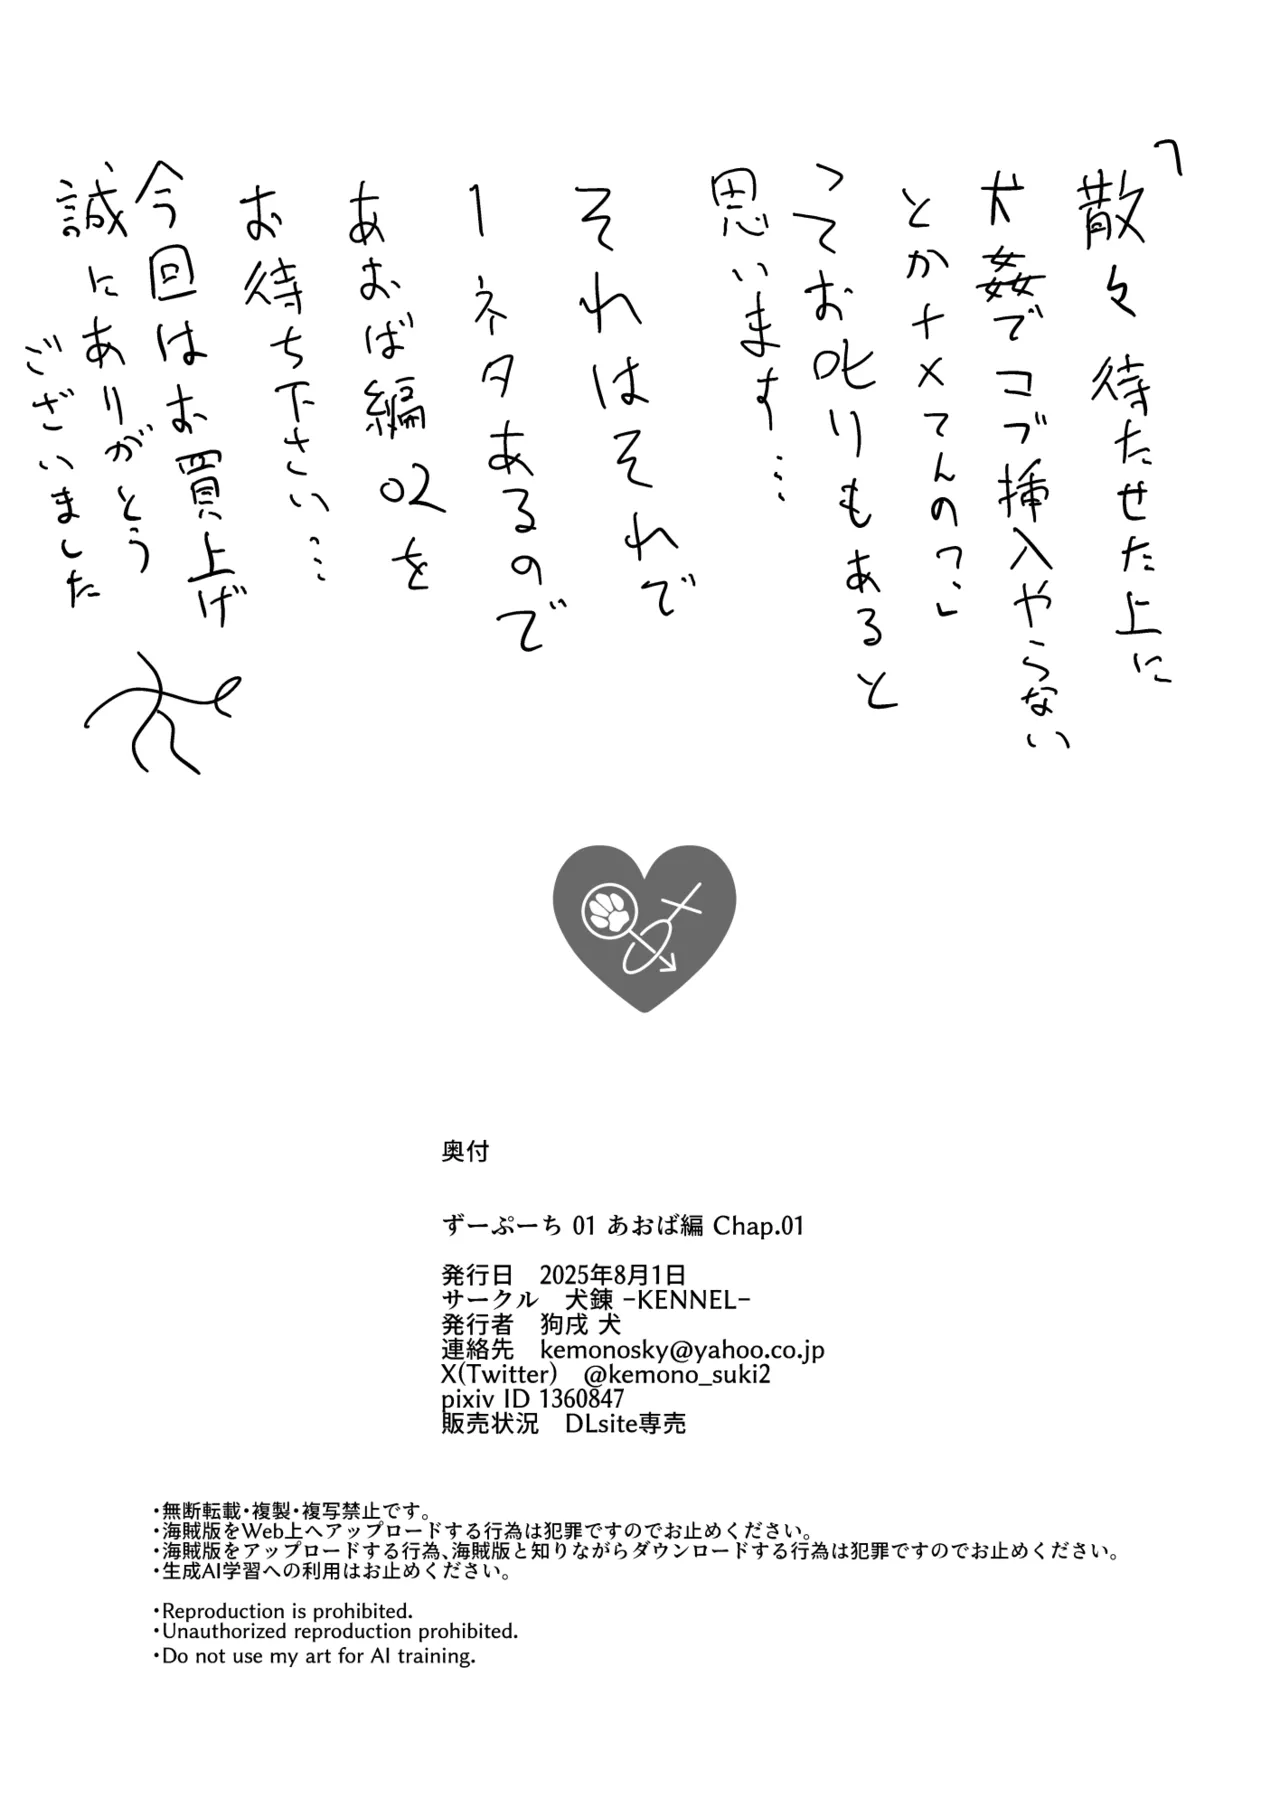 「散々待たせた上に
犬姦でコブ挿入やらない
とかナメてんの?」
ってお叱りもあると
思います…
それはそれで
1ネタあるので
あおば編02を
お待ち下さい…
今回はお買上げ
誠にありがとう
ございました
奥付
ずーぷーち 01 あおば編 Chap.01
発行日 2025年8月1日
サークル 犬錬 -KENNEL-
発行者 狗戌 犬
連絡先 kemonosky@yahoo.co.jp
X(Twitter) @kemono_suki2
pixiv ID 1360847
販売状況 DLsite専売
・無断転載・複製・複写禁止です。
・海賊版をWeb上へアップロードする行為は犯罪ですのでお止めください。
・海賊版をアップロードする行為、海賊版と知りながらダウンロードする行為は犯罪ですのでお止めください。
・生成AI学習への利用はお止めください。
・Reproduction is prohibited.
・Unauthorized reproduction prohibited.
・Do not use my art for AI training.